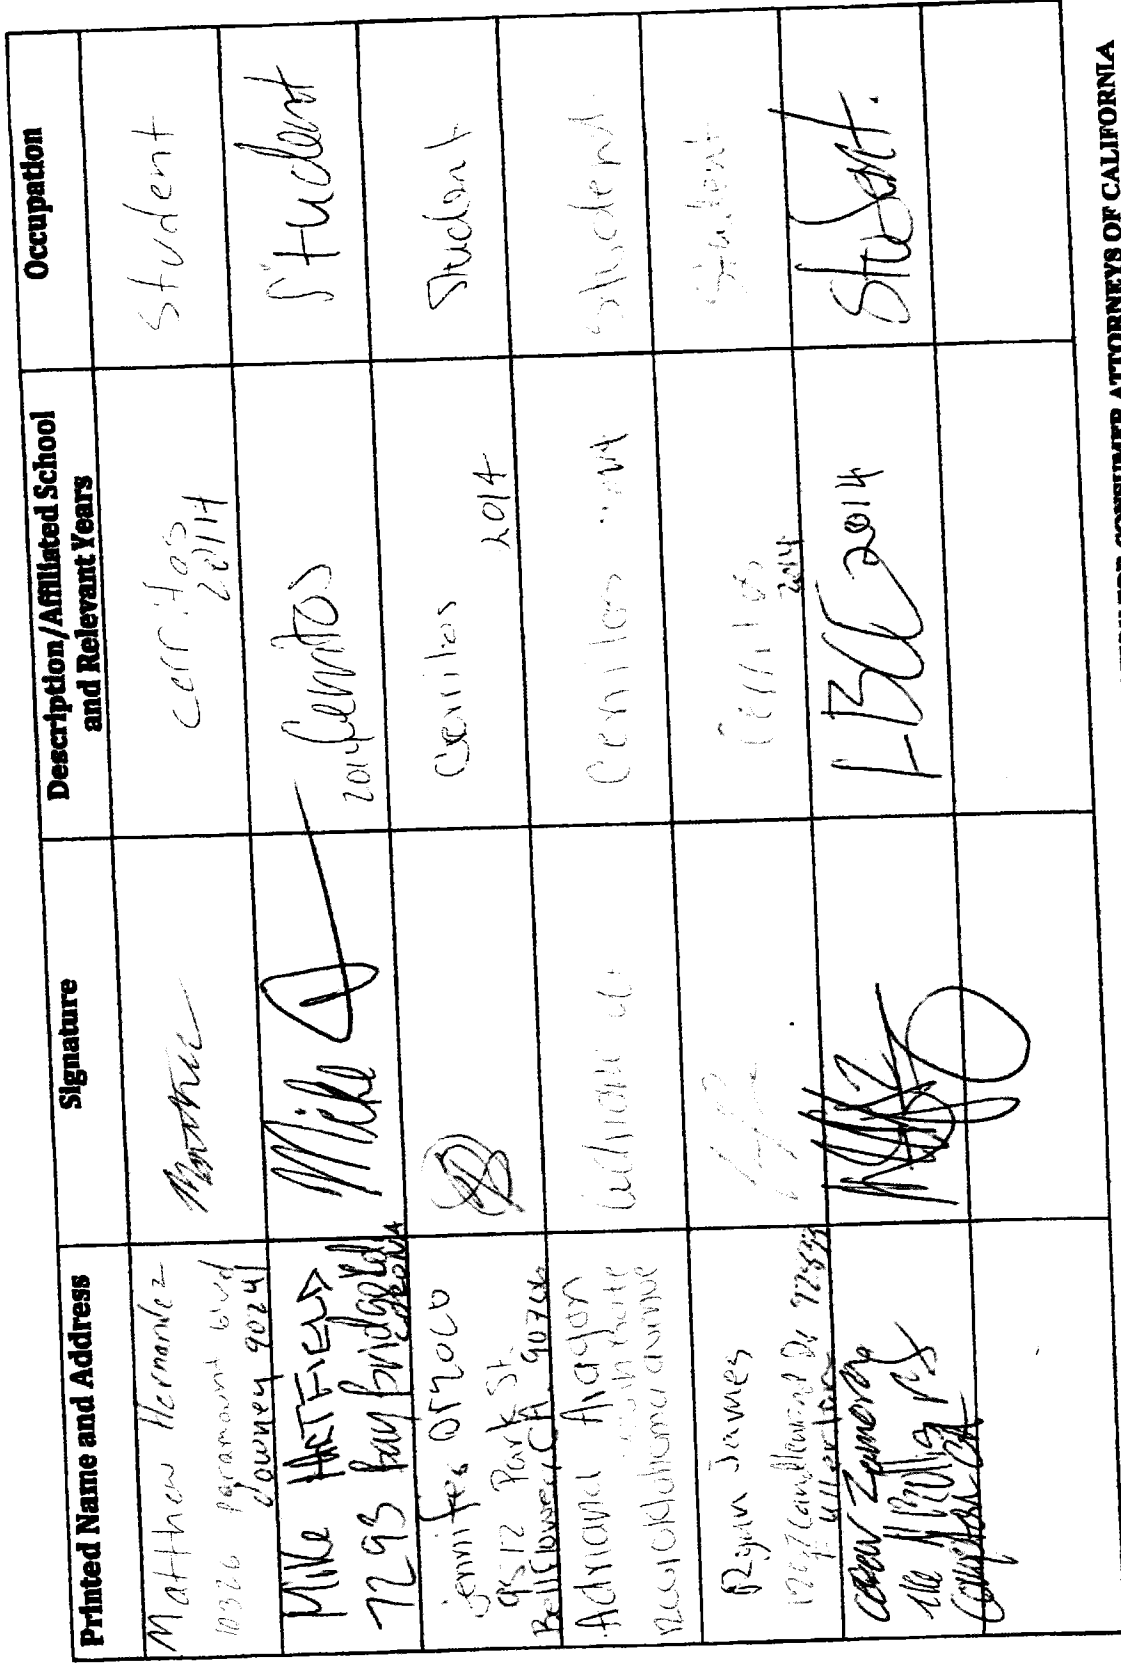 Printed Name and Address
Signature
Description/Affiliated School
and Relevant Years
Occupation
Matthew Hernandez
10326 paramount blvd
downey 90241
Matthew
cerritos
2014
Student
Mike HARTFIELD
7293 Bay Bridge Rd
CORONA
Mike
2014 Cerritos
Student
Jennifer Orozco
9512 Park St.
Bellflower, CA 90706
Cerritos
2014
Student
Adriana Aragon
south gate
oklahoma avenue
Adriana
Cerritos
Student
Ryan James
Candlewood Dr
Cerritos
2014
Student
Zamora
Compton CA
LBCC 2014
Student.
FOR CONSUMER ATTORNEYS OF CALIFORNIA